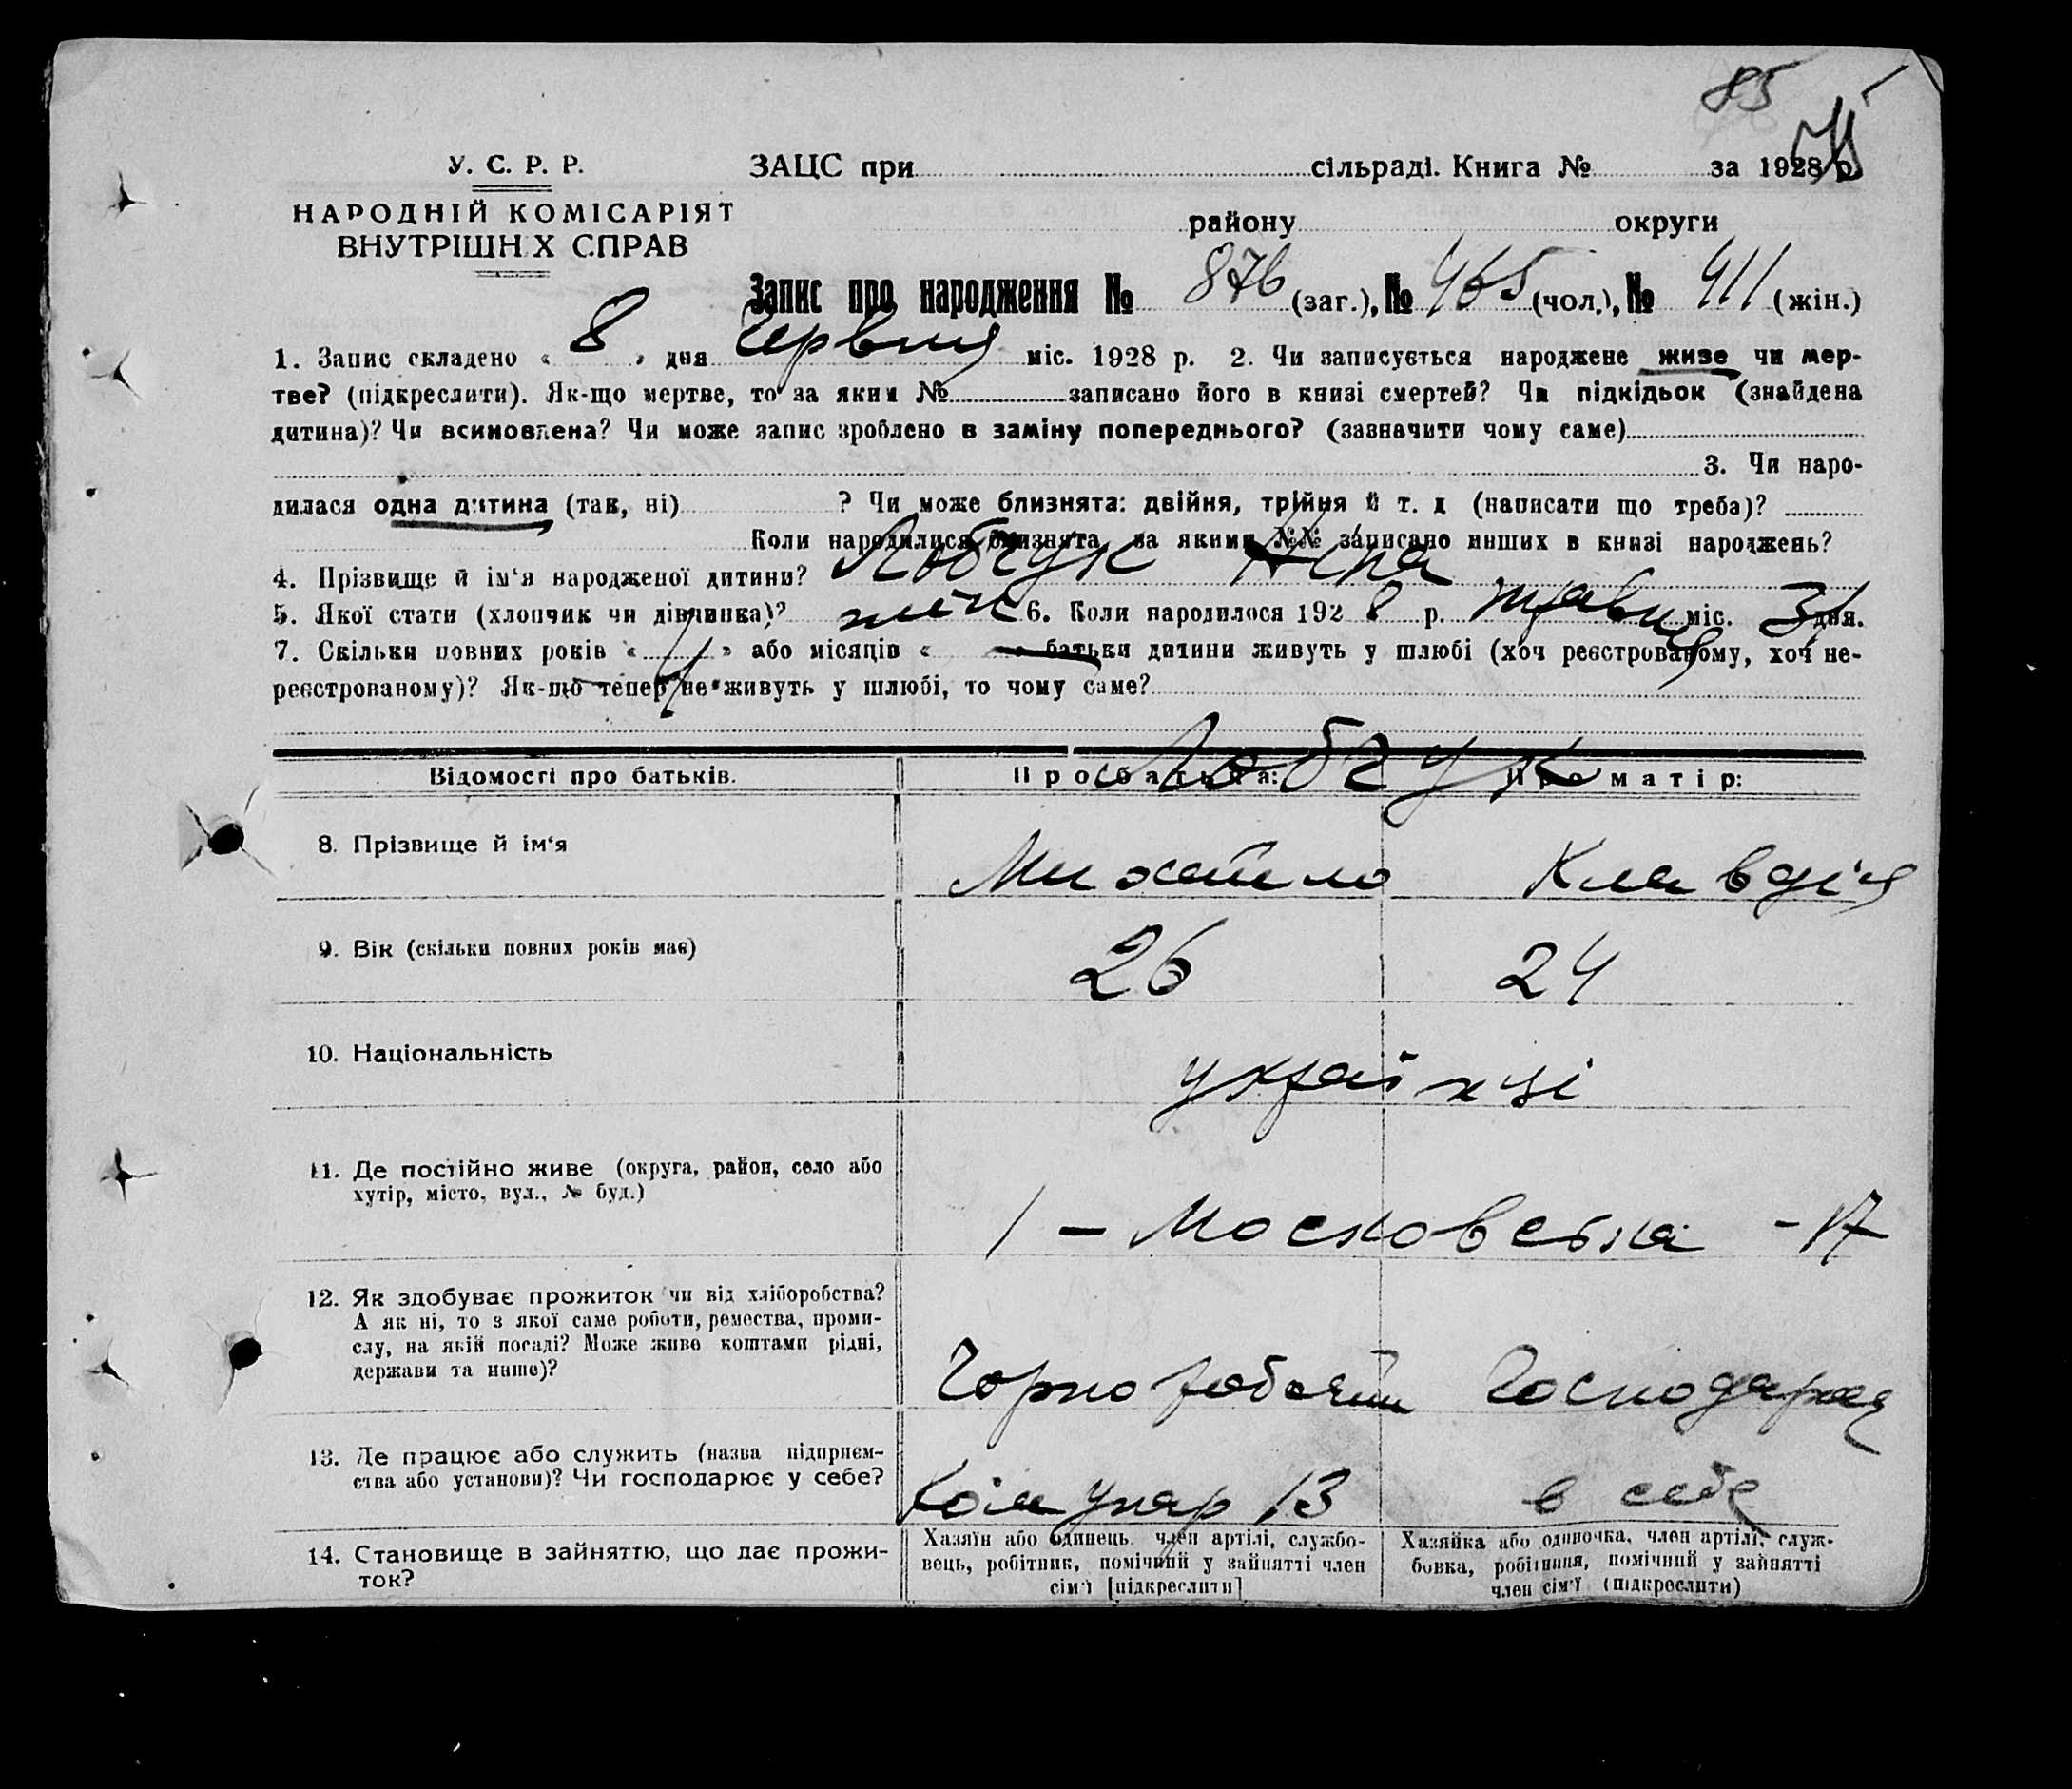 85
У. С. Р. Р.
ЗАЦС при сільраді. Книга № за 1928 р.
НАРОДНІЙ КОМІСАРІЯТ
ВНУТРІШН Х СПРАВ
району округи
Запис про народження № 876 (заг.), № 465 (чол.), № 411 (жін.)
1. Запис складено « 8 » дня Червня міс. 1928 р. 2. Чи записується народжене живе чи мер-
тве? (підкреслити). Як-що мертве, то за яким № записано його в книзі смертей? Чи підкідьок (знайдена
дитина)? Чи всиновлена? Чи може запис зроблено в заміну попереднього? (зазначити чому саме)
3. Чи наро-
дилася одна дитина (так, ні) ? Чи може близнята: двійня, трійня й т. д (написати що треба)?
Коли народилися близнята, за якими №№ записано инших в книзі народжень?
4. Прізвище й ім‘я народженої дитини? Лобчук Ніна
5. Якої стати (хлопчик чи дівчинка)? жін 6. Коли народилося 192 8 р. травня міс. 31 дня.
7. Скільки повних років « » або місяців « » батьки дитини живуть у шлюбі (хоч реєстрованому, хоч не-
реєстрованому)? Як-що тепер не живуть у шлюбі, то чому саме?
Лобчук
Відомості про батьків. Про батька: Про матір:
8. Прізвище й ім‘я Михайло Клавдія
9. Вік (скільки повних років має) 26 24
10. Національність українці
11. Де постійно живе (округа, район, село або
хутір, місто, вул., № буд.)
1 – Московська -
12. Як здобуває прожиток чи від хліборобства?
А як ні, то з якої саме роботи, ремества, проми-
слу, на якій посаді? Може живе коштами рідні,
держави та инше)?
Чорноробочий Господарка
13. Де працює або служить (назва підприєм-
ства або установи)? Чи господарює у себе?
Комунар 13 в себе
14. Становище в зайняттю, що дає прожи-
ток?
Хазяїн або одинець, член артілі, службо-
вець, робітник, помічний у зайнятті член
сім‘ї [підкреслити]
Хазяйка або одиночка, член артілі, служ-
бовка, робітниця, помічний у зайнятті
член сім‘ї (підкреслити)